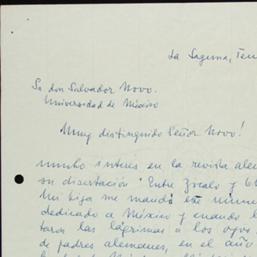 La Laguna, Ten
Sr. don Salvador Novo.
Universidad de México
Muy distinguido Señor Novo!
mucho interés en la revista ale
su disertación "Entre Zócalo y
Mi hija me mandó este núme
dedicado a México y cuando l
taron las lágrimas a los ojos.
de padres alemanes, en el año